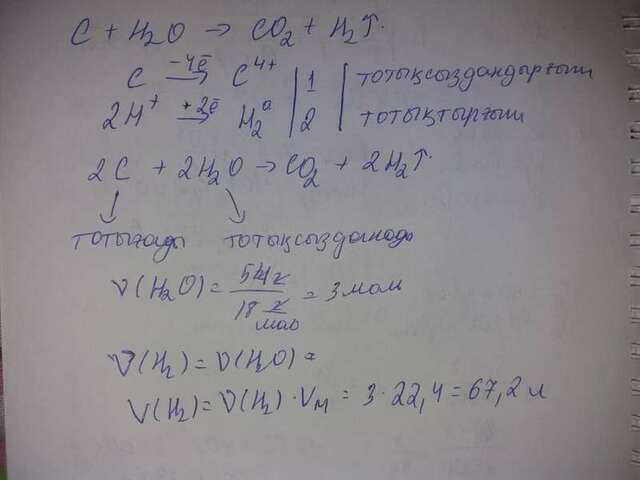 C + H2O → CO2 + H2↑.
C −4ē→ C4+ | 1 | тотықсыздандырғыш
2H+ +2ē→ H20 | 2 | тотықтырғыш
2C + 2H2O → CO2 + 2H2↑.
тотығады тотықсызданады
ν(H2O) = 54г / 18 г/моль = 3 моль
ν(H2) = ν(H2O) =
V(H2) = ν(H2) · VM = 3 · 22,4 = 67,2 л